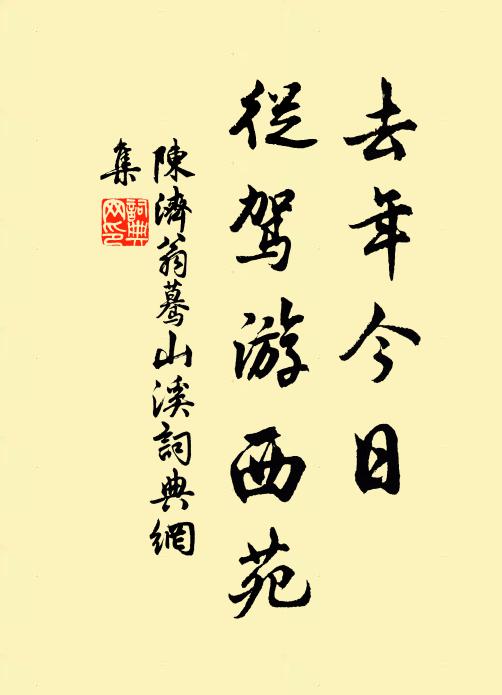 去年今日
從駕游西苑
陳濟翁驀山溪詞典網
集
詞典
网印